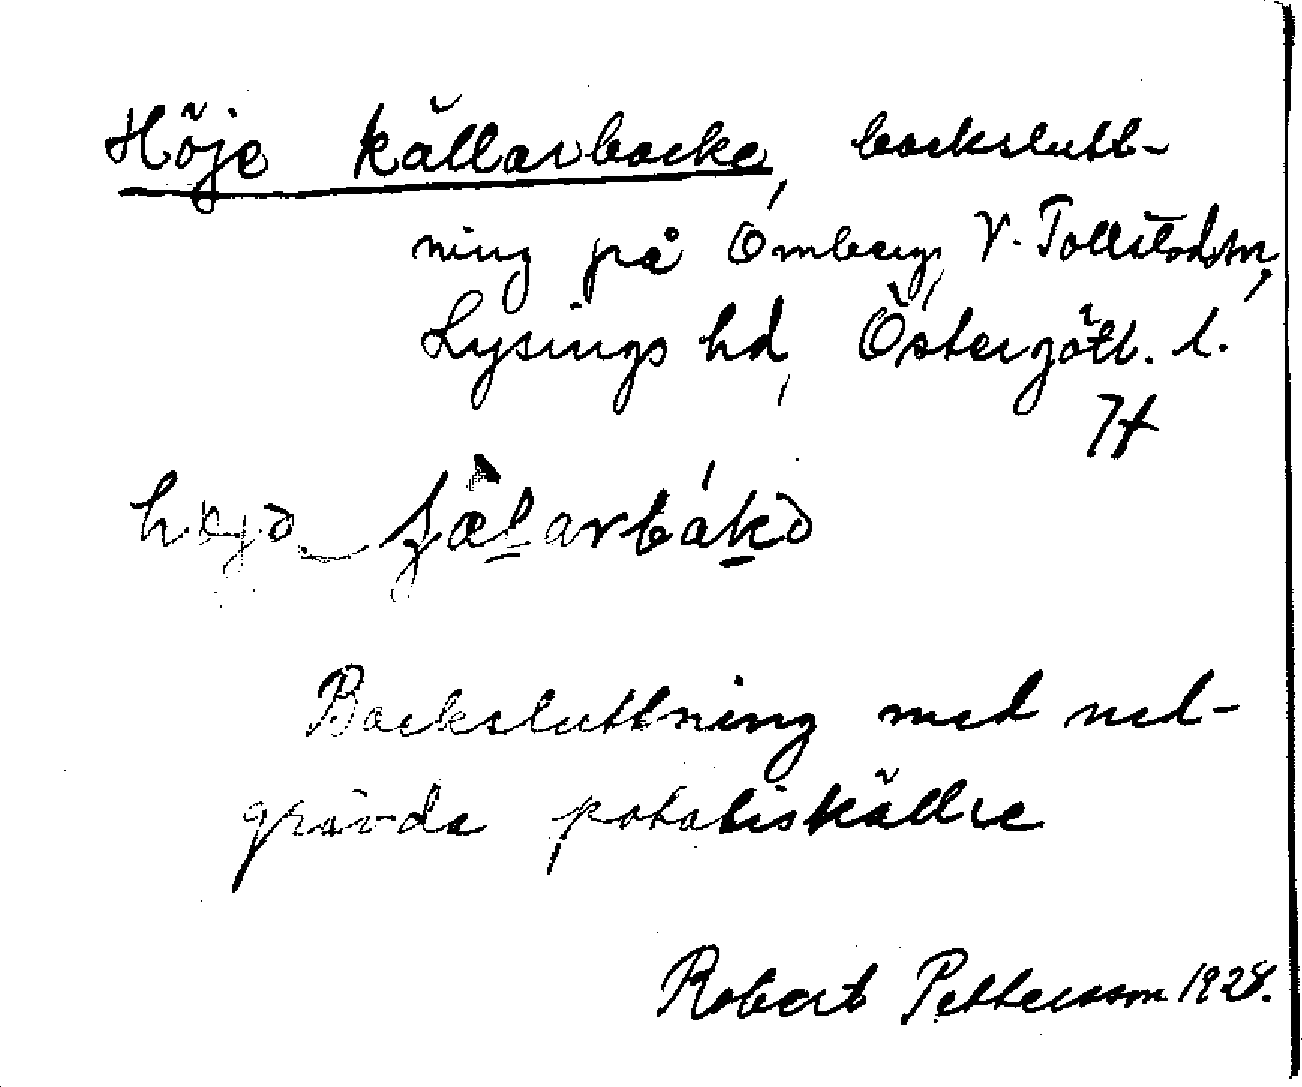 Höje källarbacke, backslutt-
ning på Omberg, V. Tollstad sn,
Lysings hd, Östergötl. l.
74
Backsluttning med ned-
grävda potatiskällre
Robert Pettersson 1928.